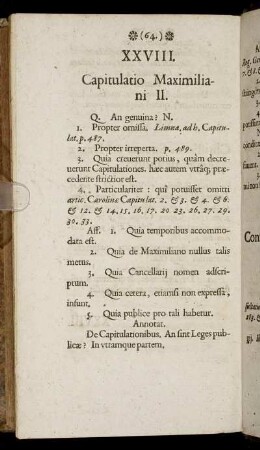 (64.)
XXVIII.
Capitulatio Maximilia-
ni II.
Q. An genuina? N.
1. Propter omissa. Limnæ, ad h. Capitu-
lat. p. 487.
2. Propter irreperta, p. 489.
3. Quia creuerunt potius, quàm decre-
uerunt Capitulationes. hæc autem vtráq; præ-
cedente strictior est.
4. Particulariter: quî potuisset omitti
artic. Carolinæ Capitulat. 2. & 3. & 4. & 6.
& 12. & 14. 15. 16. 17. 20 23. 26. 27. 29.
30. 33.
Aff. 1. Quia temporibus accommo-
data est.
2. Quia de Maximiliano nullus talis
metus.
3. Quia Cancellarij nomen adscri-
ptum.
4. Quia cetera, etiamsi non expressa,
insunt.
5. Quia publice pro tali habetur.
Annotat.
De Capitulationibus, An sint Leges pub-
licæ? In vtramque partem,